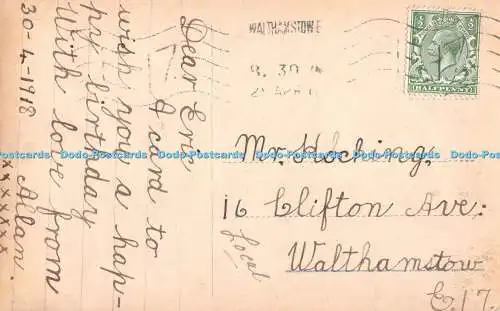 Dear Eric
A card to
wish you a hap-
py birthday
With love from
Allan.
xxxxxxx
30-4-1918
WALTHAMSTOWE
8.30
2 APR
HALFPENNY
Mr. Hocking,
16 Clifton Ave:
Walthamstow
E.17.
Local
Dodo-Postcards Dodo-Postcards Dodo-Postcards Dodo-Postcards Dodo-Postcards